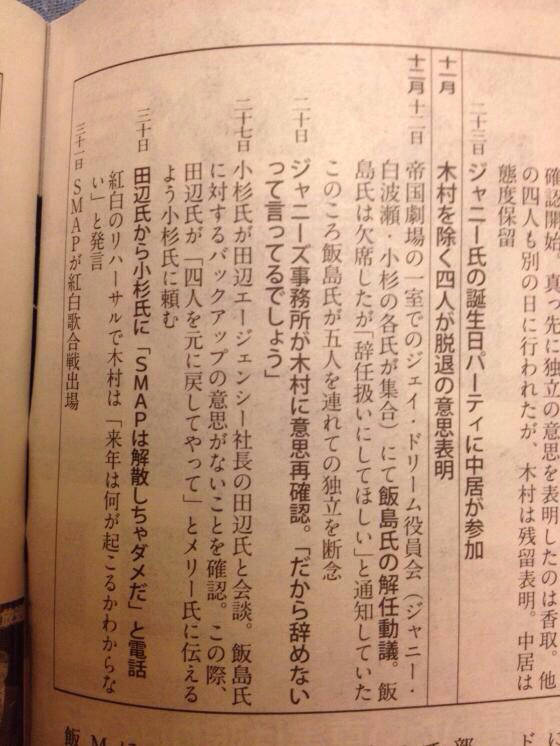 確認開始。真っ先に独立の意思を表明したのは香取。他
の四人も別の日に行われたが、木村は残留表明。中居は
態度保留
二十三日 ジャニー氏の誕生日パーティに中居が参加
十一月 木村を除く四人が脱退の意思表明
十二月 十二日 帝国劇場の一室でのジェイ・ドリーム役員会（ジャニー・
白波瀬・小杉の各氏が集合）にて飯島氏の解任動議。飯
島氏は欠席したが「辞任扱いにしてほしい」と通知していた
このころ飯島氏が五人を連れての独立を断念
二十日 ジャニーズ事務所が木村に意思再確認。「だから辞めない
って言ってるでしょう」
二十七日 小杉氏が田辺エージェンシー社長の田辺氏と会談。飯島氏
に対するバックアップの意思がないことを確認。この際、
田辺氏が「四人を元に戻してやって」とメリー氏に伝える
よう小杉氏に頼む
三十日 田辺氏から小杉氏に「SMAPは解散しちゃダメだ」と電話
紅白のリハーサルで木村は「来年は何が起こるかわからな
い」と発言
三十一日 SMAPが紅白歌合戦出場